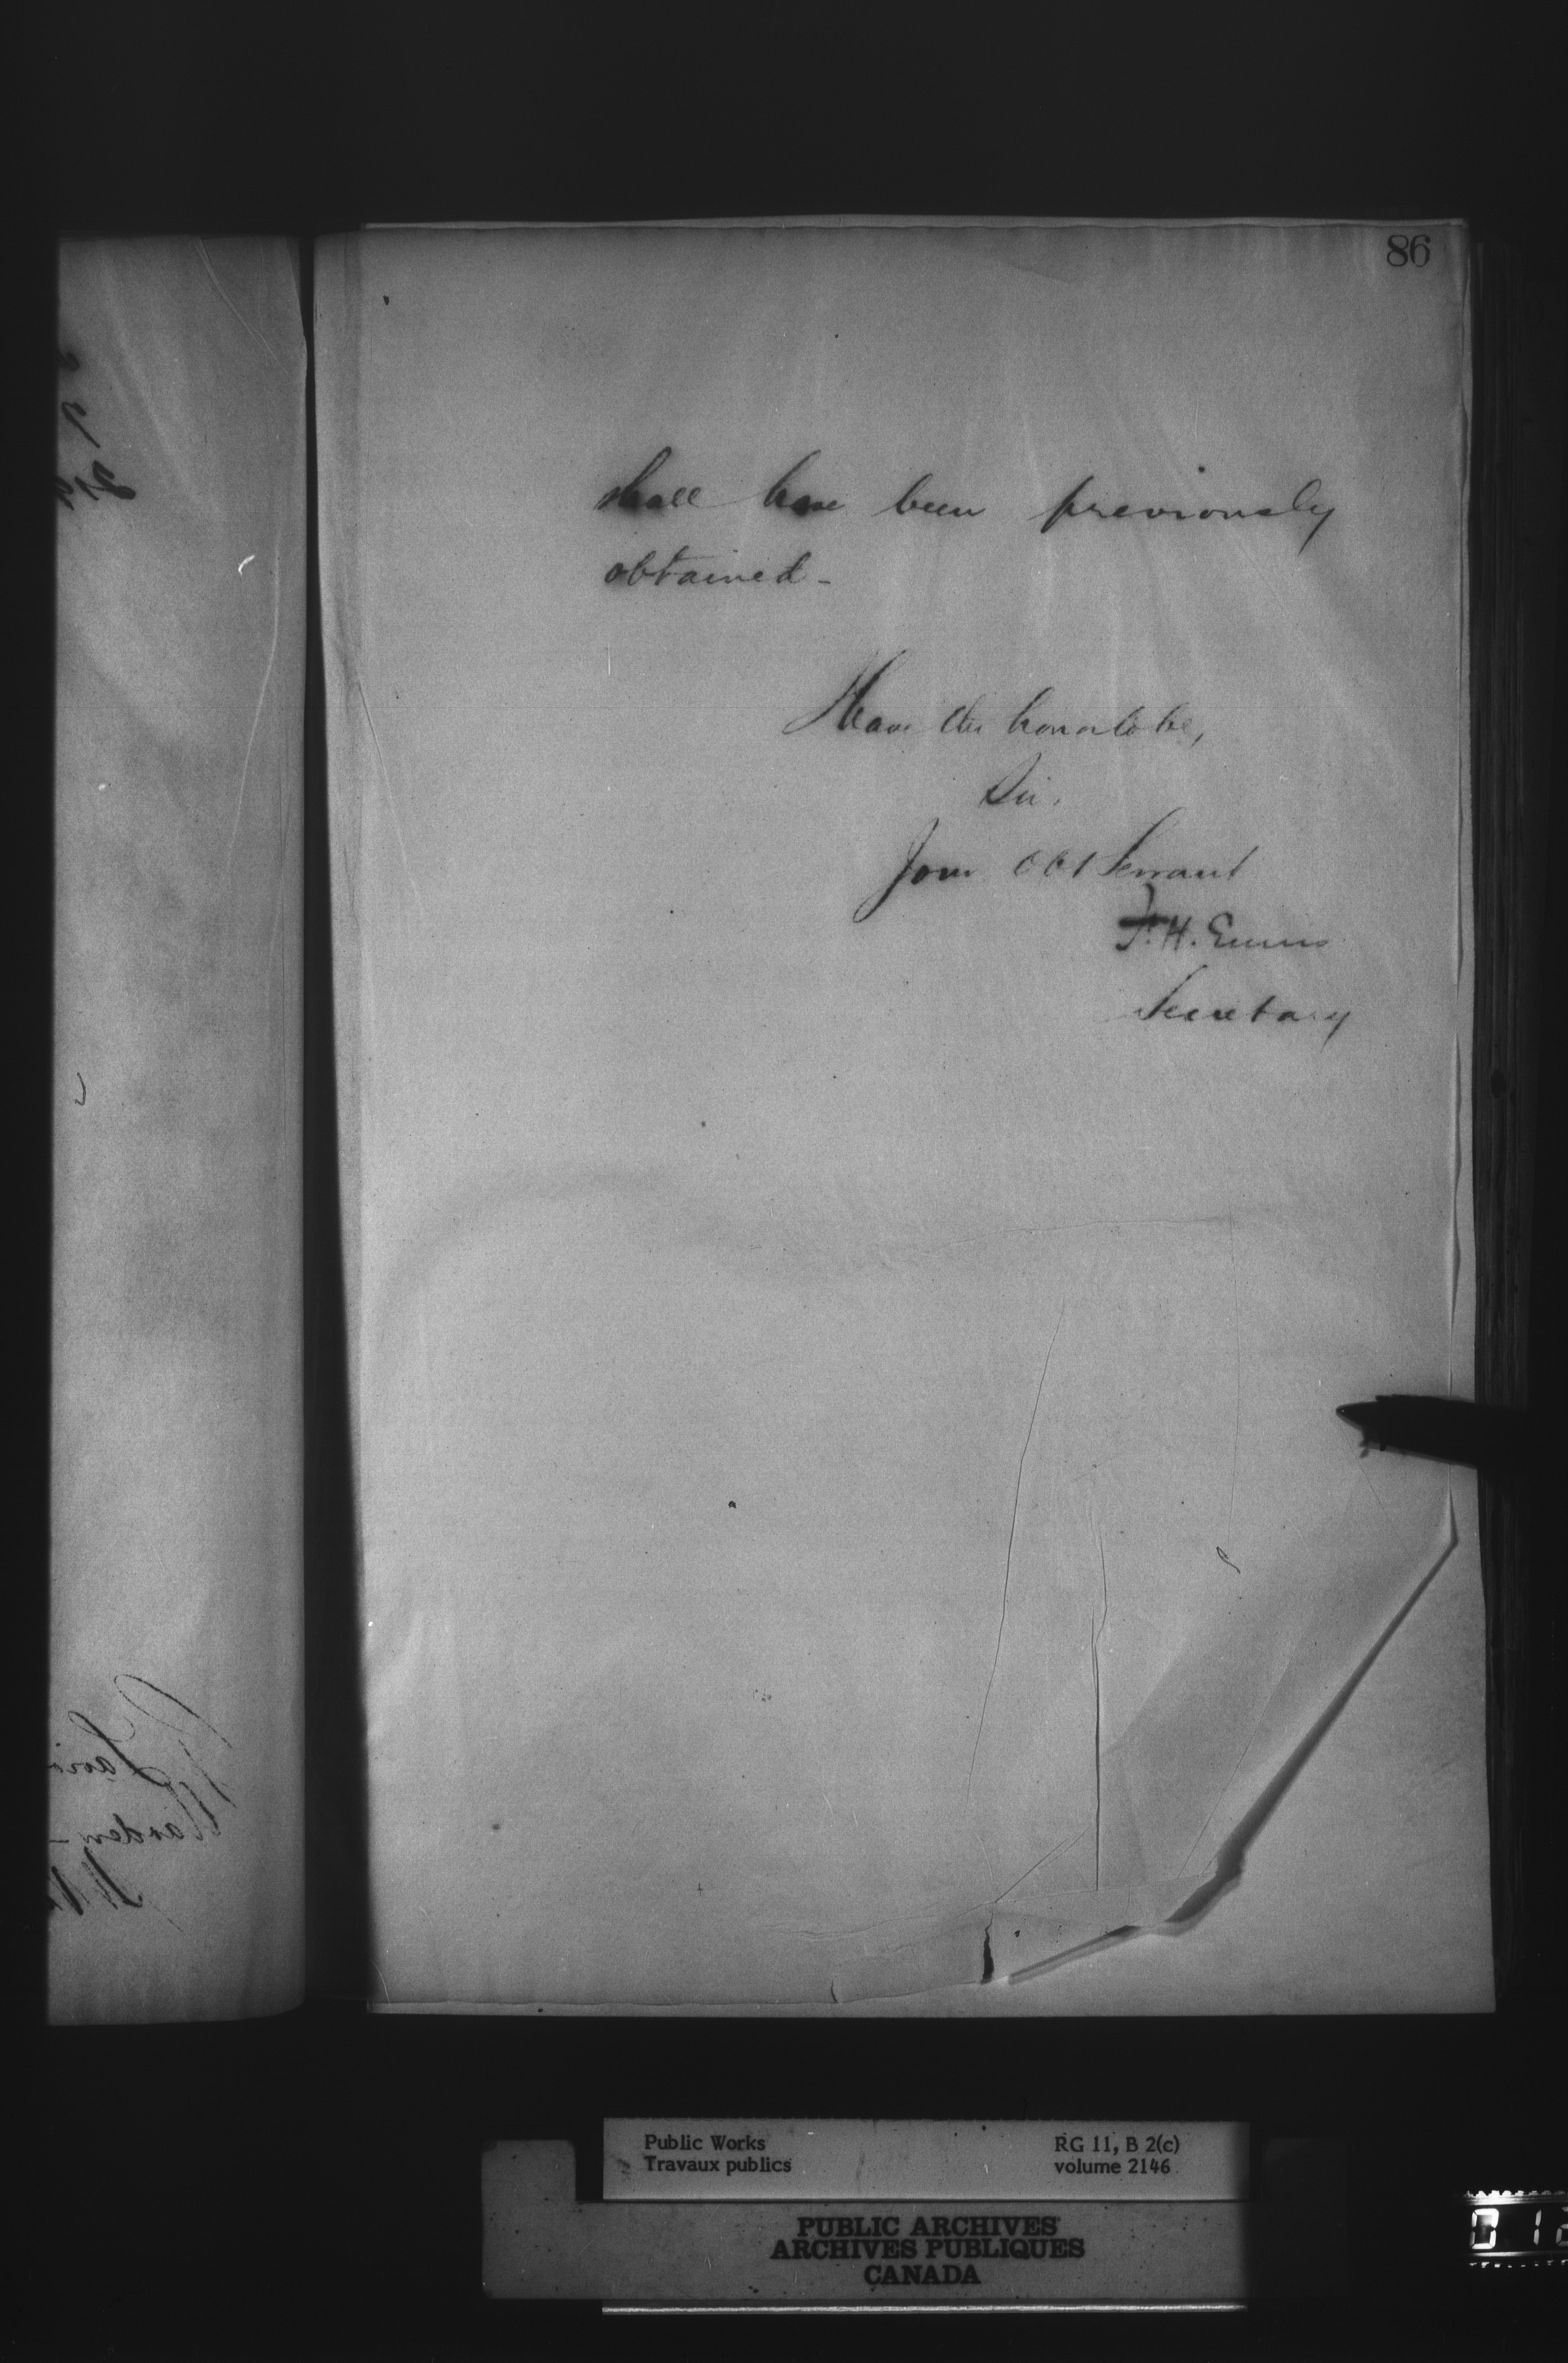 86
shall have been previously
obtained -
I have the honor to be,
Sir,
Your Obt Servant
F. H. Ennis
Secretary
Public Works
Travaux publics
RG 11, B 2(c)
volume 2146
PUBLIC ARCHIVES
ARCHIVES PUBLIQUES
CANADA